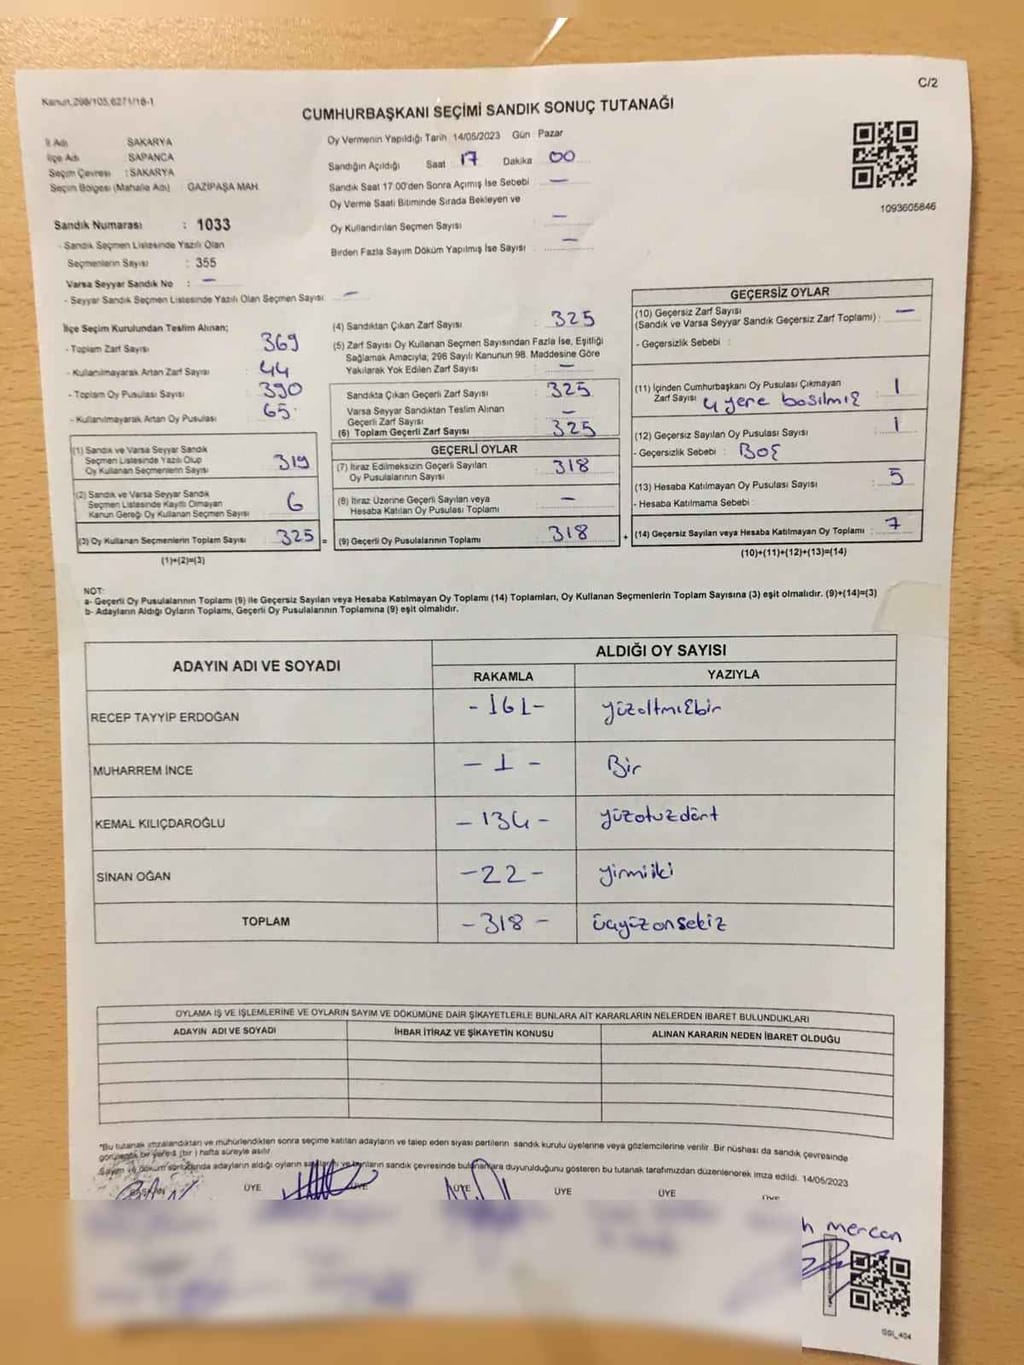 Kanun,298/105,6271/18-1
C/2
CUMHURBAŞKANI SEÇİMİ SANDIK SONUÇ TUTANAĞI
İl Adı SAKARYA
İlçe Adı SAPANCA
Seçim Çevresi : SAKARYA
Seçim Bölgesi (Mahalle Adı) GAZİPAŞA MAH.
Sandık Numarası : 1033
- Sandık Seçmen Listesinde Yazılı Olan
Seçmenlerin Sayısı : 355
Varsa Seyyar Sandık No : —
- Seyyar Sandık Seçmen Listesinde Yazılı Olan Seçmen Sayısı: —
Oy Vermenin Yapıldığı Tarih 14/05/2023 Gün Pazar
Sandığın Açıldığı Saat 17 Dakika 00
Sandık Saat 17.00'den Sonra Açımış İse Sebebi —
Oy Verme Saati Bitiminde Sırada Bekleyen ve
Oy Kullandırılan Seçmen Sayısı —
Birden Fazla Sayım Döküm Yapılmış İse Sayısı —
1093605846
İlçe Seçim Kurulundan Teslim Alınan;
- Toplam Zarf Sayısı 369
- Kullanılmayarak Artan Zarf Sayısı 44
- Toplam Oy Pusulası Sayısı 390
- Kullanılmayarak Artan Oy Pusulası 65
(1) Sandık ve Varsa Seyyar Sandık
Seçmen Listesinde Yazılı Olup
Oy Kullanan Seçmenlerin Sayısı 319
(2) Sandık ve Varsa Seyyar Sandık
Seçmen Listesinde Kayıtlı Olmayan
Kanun Gereği Oy Kullanan Seçmen Sayısı 6
(3) Oy Kullanan Seçmenlerin Toplam Sayısı 325 =
(1)+(2)=(3)
(4) Sandıktan Çıkan Zarf Sayısı 325
(5) Zarf Sayısı Oy Kullanan Seçmen Sayısından Fazla İse, Eşitliği
Sağlamak Amacıyla; 298 Sayılı Kanunun 98. Maddesine Göre
Yakılarak Yok Edilen Zarf Sayısı —
Sandıkta Çıkan Geçerli Zarf Sayısı 325
Varsa Seyyar Sandıktan Teslim Alınan
Geçerli Zarf Sayısı —
(6) Toplam Geçerli Zarf Sayısı 325
GEÇERLİ OYLAR
(7) İtiraz Edilmeksizin Geçerli Sayılan
Oy Pusulalarının Sayısı 318
(8) İtiraz Üzerine Geçerli Sayılan veya
Hesaba Katılan Oy Pusulası Toplamı —
(9) Geçerli Oy Pusulalarının Toplamı 318 +
GEÇERSİZ OYLAR
(10) Geçersiz Zarf Sayısı
(Sandık ve Varsa Seyyar Sandık Geçersiz Zarf Toplamı) : —
- Geçersizlik Sebebi :
(11) İçinden Cumhurbaşkanı Oy Pusulası Çıkmayan
Zarf Sayısı 1
4 yere basılmış
(12) Geçersiz Sayılan Oy Pusulası Sayısı 1
- Geçersizlik Sebebi : BOŞ
(13) Hesaba Katılmayan Oy Pusulası Sayısı 5
- Hesaba Katılmama Sebebi :
(14) Geçersiz Sayılan veya Hesaba Katılmayan Oy Toplamı 7
(10)+(11)+(12)+(13)=(14)
NOT:
a- Geçerli Oy Pusulalarının Toplamı (9) ile Geçersiz Sayılan veya Hesaba Katılmayan Oy Toplamı (14) Toplamları, Oy Kullanan Seçmenlerin Toplam Sayısına (3) eşit olmalıdır. (9)+(14)=(3)
b- Adayların Aldığı Oyların Toplamı, Geçerli Oy Pusulalarının Toplamına (9) eşit olmalıdır.
ADAYIN ADI VE SOYADI
ALDIĞI OY SAYISI
RAKAMLA YAZIYLA
RECEP TAYYİP ERDOĞAN -161- yüzaltmışbir
MUHARREM İNCE -1- Bir
KEMAL KILIÇDAROĞLU -134- yüzotuzdört
SİNAN OĞAN -22- yirmiiki
TOPLAM -318- üçyüzonsekiz
OYLAMA İŞ VE İŞLEMLERİNE VE OYLARIN SAYIM VE DÖKÜMÜNE DAİR ŞİKAYETLERLE BUNLARA AİT KARARLARIN NELERDEN İBARET BULUNDUKLARI
ADAYIN ADI VE SOYADI İHBAR İTİRAZ VE ŞİKAYETİN KONUSU ALINAN KARARIN NEDEN İBARET OLDUĞU
*Bu tutanak imzalandıktan ve mühürlendikten sonra seçime katılan adayların ve talep eden siyasi partilerin sandık kurulu üyelerine veya gözlemcilerine verilir. Bir nüshası da sandık çevresinde
bir yere (bir) hafta süreyle asılır.
Sayım ve döküm sonucunda adayların aldığı oyların sandık çevresinde bulunanlara duyurulduğunu gösteren bu tutanak tarafımızdan düzenlenerek imza edildi. 14/05/2023
ÜYE ÜYE ÜYE ÜYE
Mercan